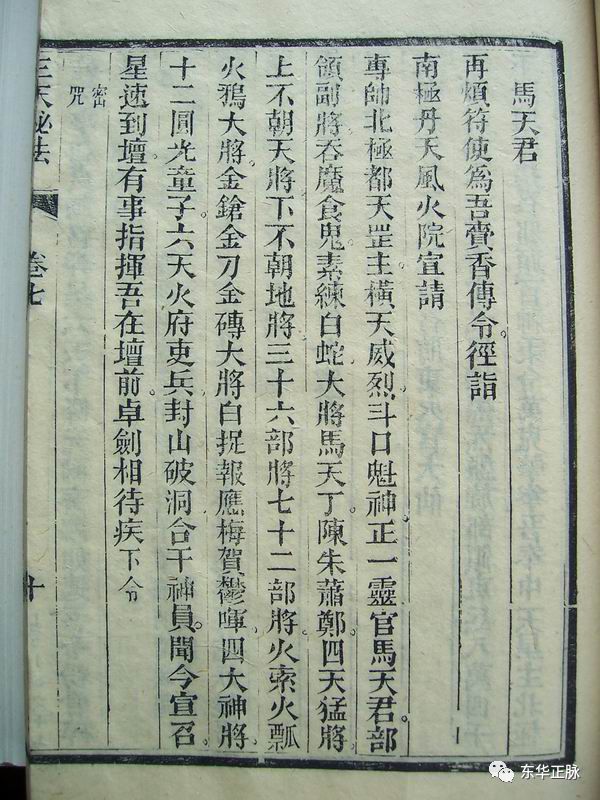 馬天君
再煩符使為吾賫香傳令。徑詣
南極丹天風火院宣請
專帥北極都天罡主橫天威烈斗口魁神。正一靈官馬天君。部
領副將吞魔食鬼。素練白蛇大將馬天丁。陳朱蕭鄭。四天猛將。
上不朝天將下不朝地將三十六部將七十二部將。火索火瓢
火鴉大將金鎗金刀金磚大將白捉報應。梅賀鬱暉。四大神將。
十二圓光童子。六天火府吏兵。封山破洞合干神員。聞今宣召。
星速到壇有事指揮吾在壇前。卓劍相待疾下令
密咒
三天秘法
卷七
十
东华正脉